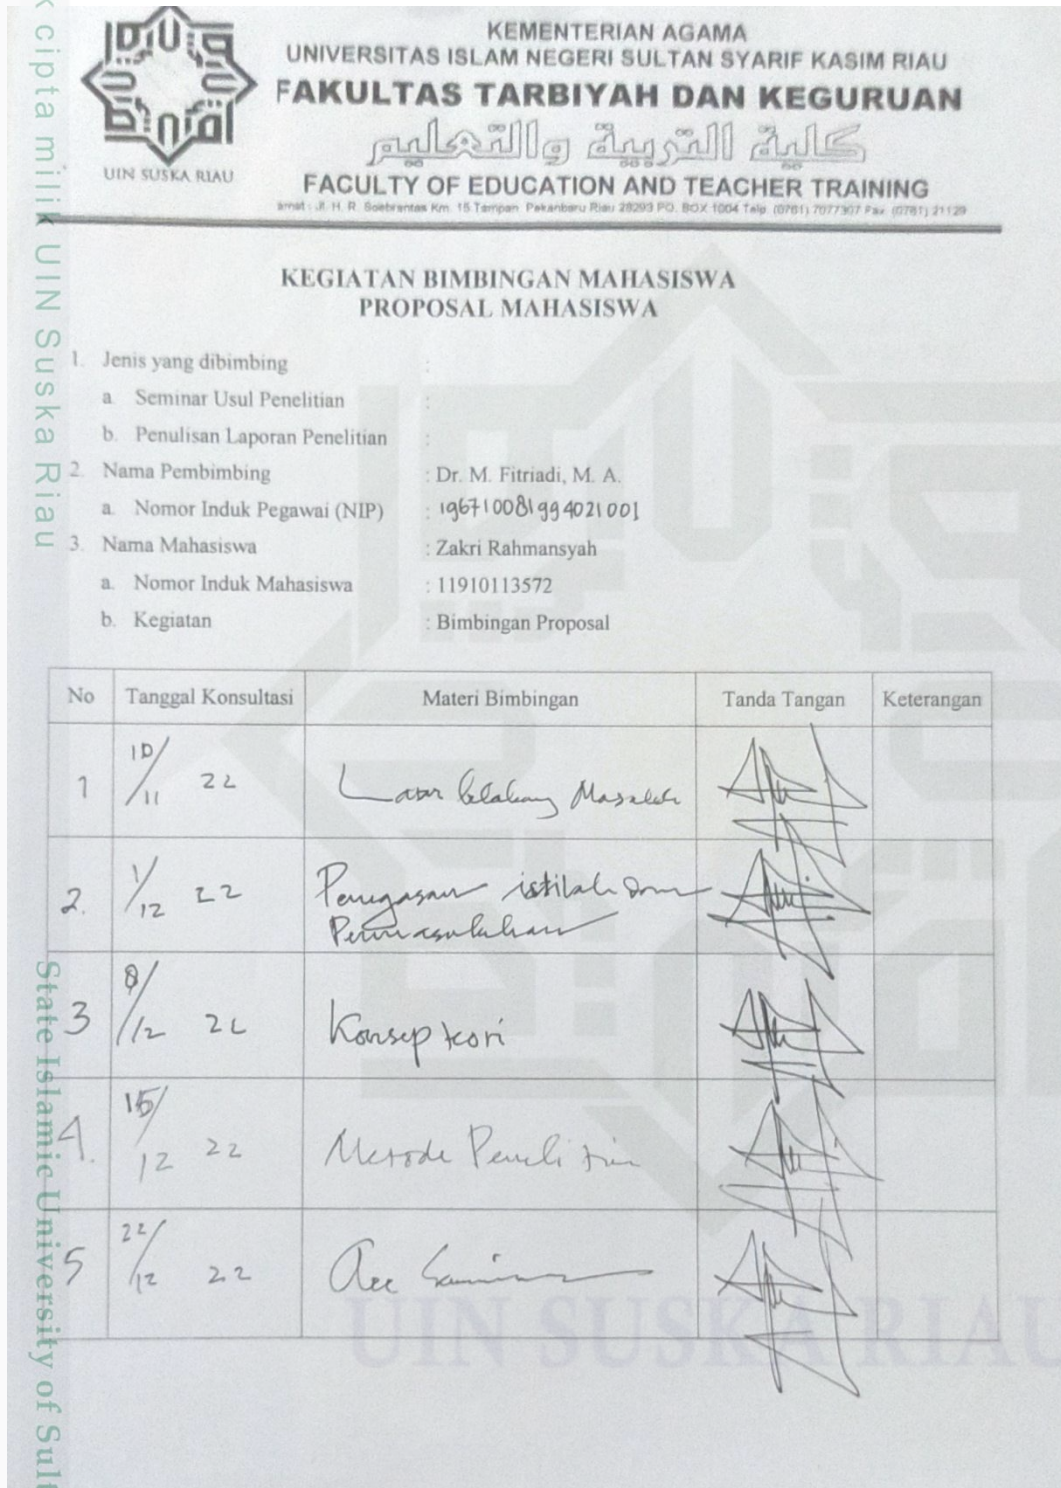 k cipta milik UIN Suska Riau
State Islamic University of Sult
UIN SUSKA RIAU
KEMENTERIAN AGAMA
UNIVERSITAS ISLAM NEGERI SULTAN SYARIF KASIM RIAU
FAKULTAS TARBIYAH DAN KEGURUAN
كلية التربية والتعليم
FACULTY OF EDUCATION AND TEACHER TRAINING
lamat : Jl. H. R. Soebrantas Km. 15 Tampan Pekanbaru Riau 28293 PO. BOX 1004 Telp. (0761) 7077307 Fax. (0761) 21129
KEGIATAN BIMBINGAN MAHASISWA
PROPOSAL MAHASISWA
1. Jenis yang dibimbing :
a. Seminar Usul Penelitian :
b. Penulisan Laporan Penelitian :
2. Nama Pembimbing : Dr. M. Fitriadi, M. A.
a. Nomor Induk Pegawai (NIP) : 196710081994021001
3. Nama Mahasiswa : Zakri Rahmansyah
a. Nomor Induk Mahasiswa : 11910113572
b. Kegiatan : Bimbingan Proposal
No Tanggal Konsultasi Materi Bimbingan Tanda Tangan Keterangan
1 10/11 22 Latar belakang Masalah
2. 1/12 22 Penegasan istilah dan
Permasalahan
3 8/12 22 Konsep teori
4. 15/12 22 Metode Penelitian
5 22/12 22 Acc Seminar
UIN SUSKA RIAU